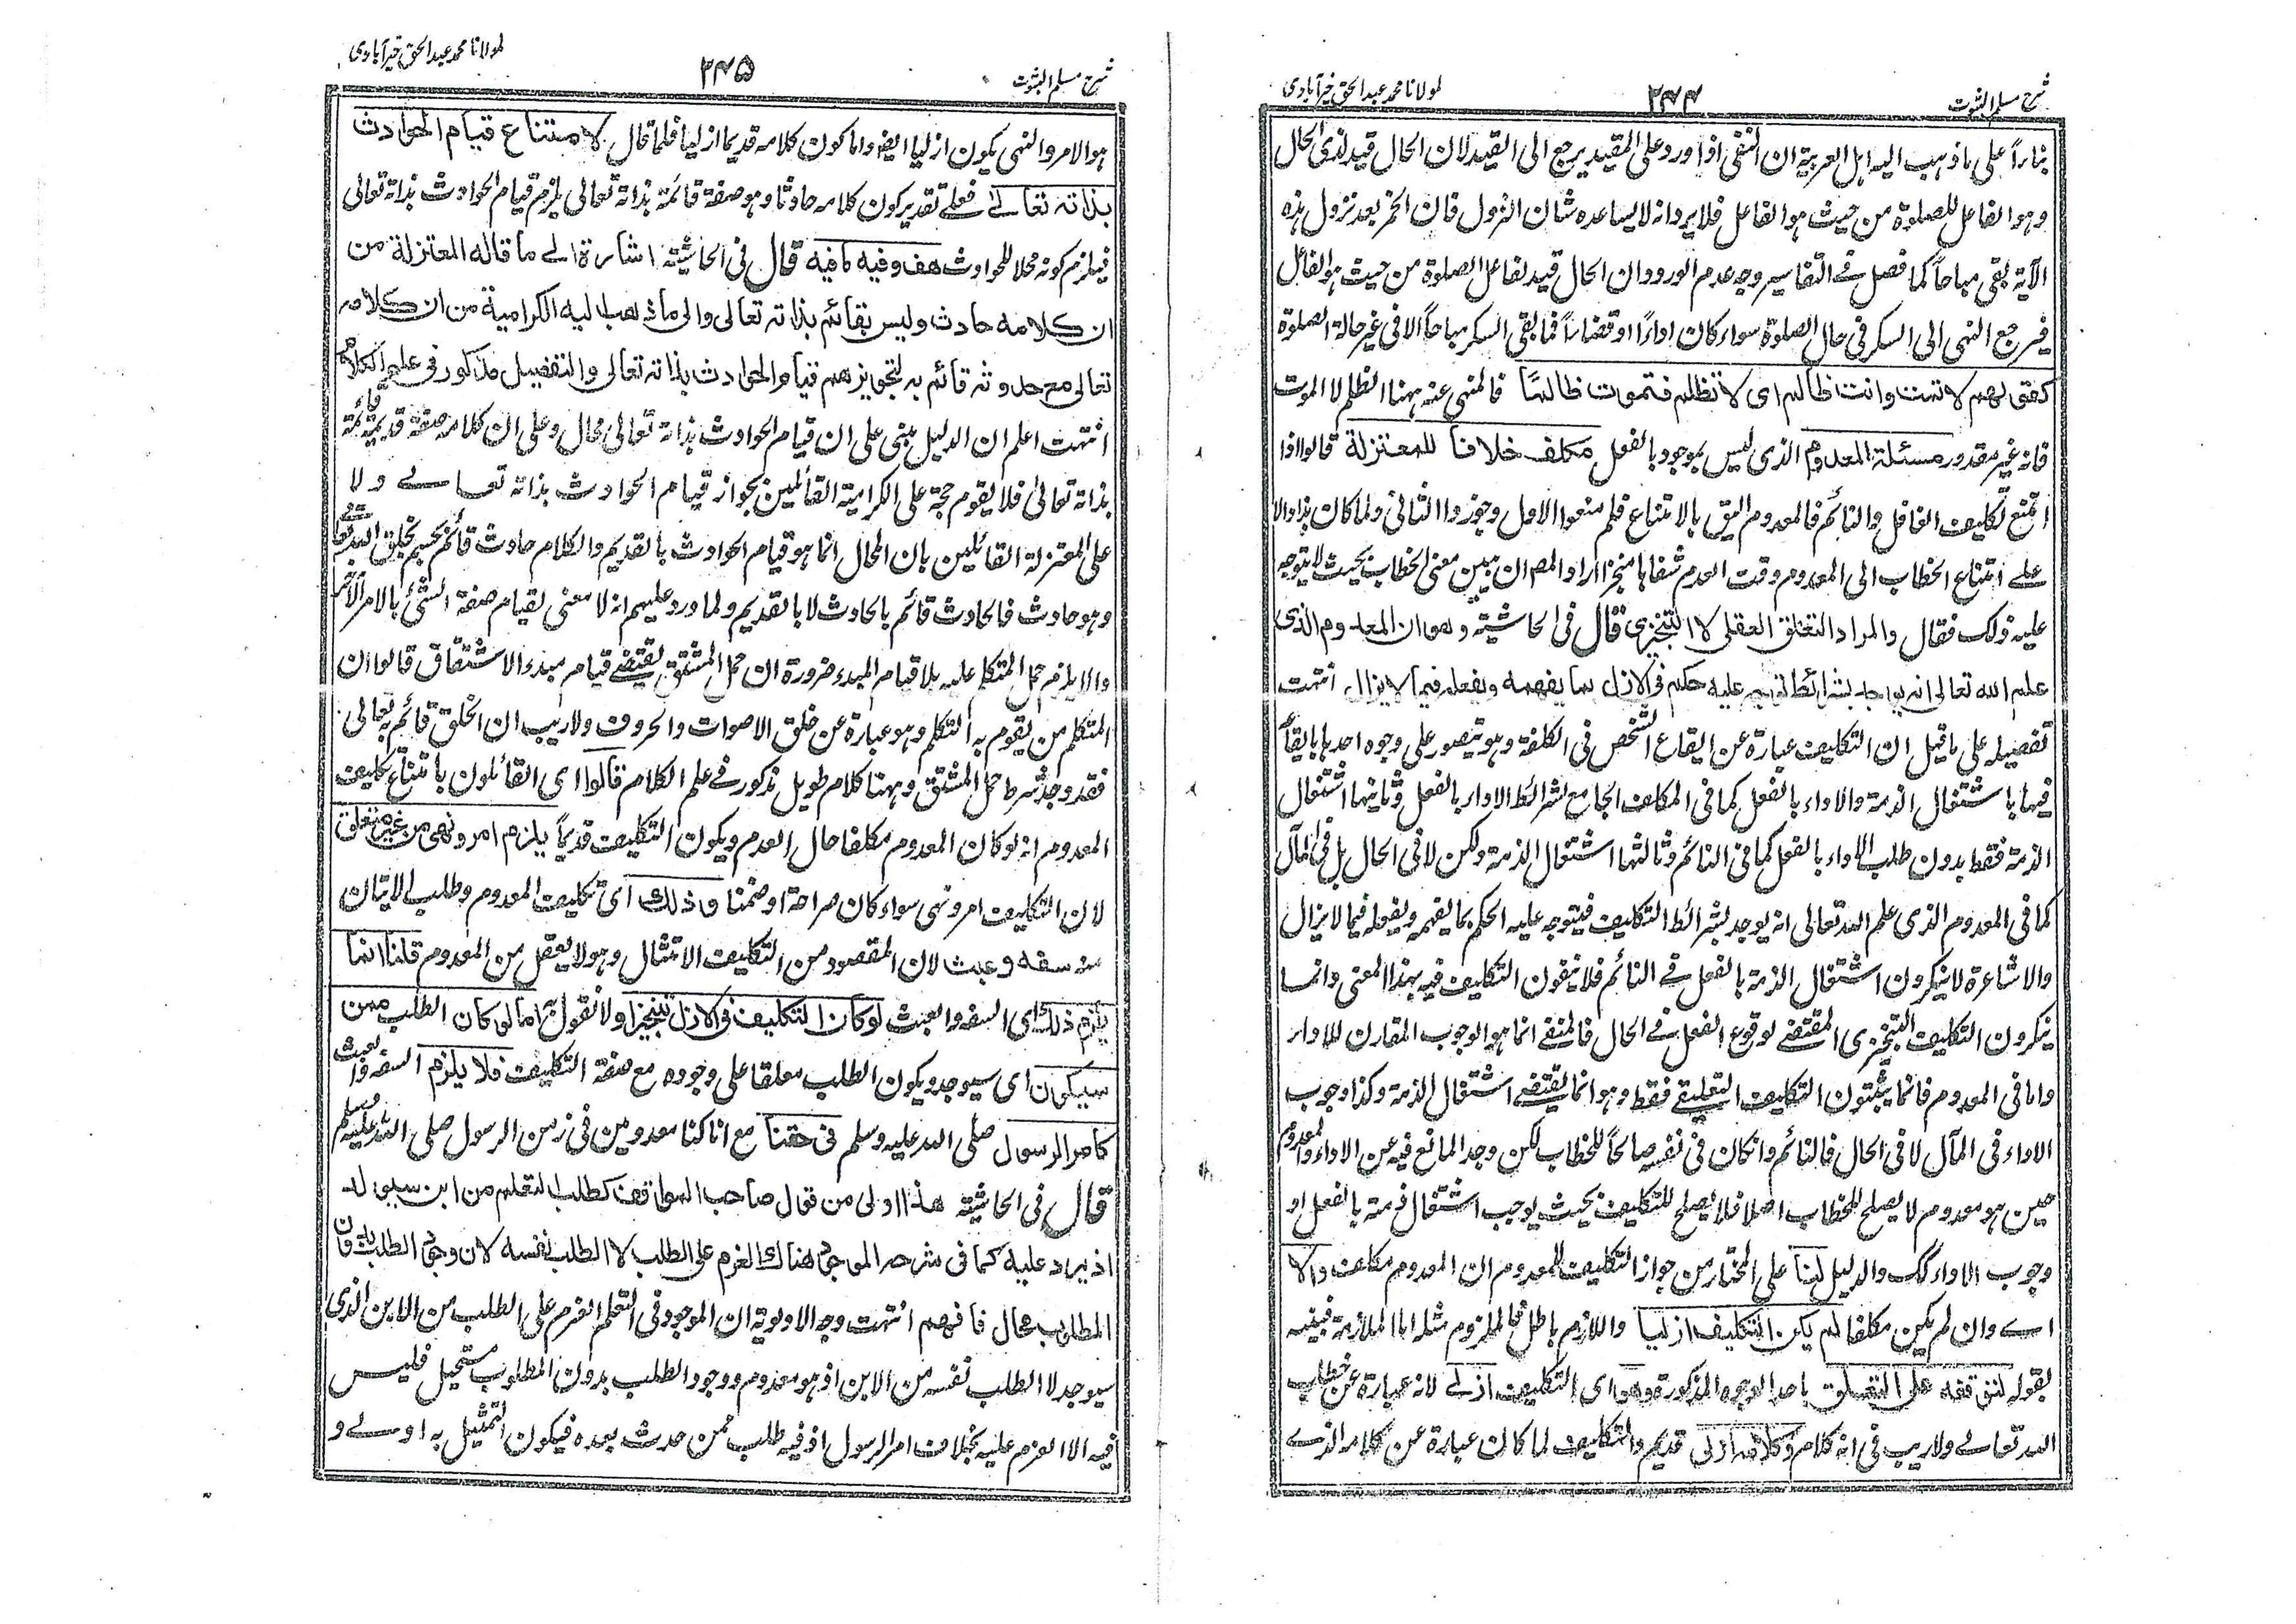 شرح مسلم الثبوت
۲۴۴
لمولانا محمد عبدالحق خیرآبادی
بناءاً على ما ذهب اليه اهل العربية ان النفى اذا ورد على المقيد يرجع الى القيد لان الحال قيد لذى الحال
وهو الفاعل للصلوة من حيث هو الفاعل فلا يرد انه لا يساعده شان النزول فان الخمر بعد نزول هذه
الآية بقى مباحاً كما فصل فى التفاسير وجه عدم الورود ان الحال قيد لفاعل الصلوة من حيث هو الفاعل
فيرجع النهى الى السكر فى حال الصلوة سواء كان اداءً او قضاءاً فما بقى السكر مباحاً الا فى غير حالة الصلوة
كقولهم لا تمت وانت ظالم اى لا تظلم فتموت ظالمًا فالمنهى عنه ههنا الظلم لا الموت
فانه غير مقدور مسئلة المعدوم الذى ليس بموجود بالفعل مكلف خلافا للمعتزلة قالوا اذا
امتنع تكليف الغافل والنائم فالمعدوم اليق بالامتناع فلم منعوا الاول وجوزوا الثانى ولما كان هذا دالا
على امتناع الخطاب الى المعدوم وقت العدم شفاها منجزا اراد المص ان يبين معنى الخطاب بحيث لا يتوجه
عليه ذلك فقال والمراد التعلق العقلى لا التنجيزى قال فى الحاشية وهو ان المعدوم الذى
علم الله تعالى انه يوجد بشرائط التكليف توجه عليه حكم فى الازل بما يفهمه ويفعله فيما لا يزال انتهت
تفصيله على ما قيل ان التكليف عبارة عن ايقاع الشخص فى الكلفة وهو يتصور على وجوه احدها بايقاع
فيها باشتغال الذمة والاداء بالفعل كما فى المكلف الجامع لشرائط الاداء بالفعل وثانيها اشتغال
الذمة فقط بدون طلب الاداء بالفعل كما فى النائم وثالثها اشتغال الذمة ولكن لا فى الحال بل فى المآل
كما فى المعدوم الذى علم الله تعالى انه يوجد بشرائط التكليف فيتوجه عليه الحكم بما يفهمه ويفعله فيما لا يزال
والاشاعرة لا ينكرون اشتغال الذمة بالفعل فى النائم فلا ينفون التكليف فيه بهذا المعنى وانما
ينكرون التكليف التنجيزى المقتضى لوقوع الفعل فى الحال فالمنفى انما هو الوجوب المقارن للاداء
واما فى المعدوم فانما يثبتون التكليف التعليقى فقط وهو انما يقتضى اشتغال الذمة وكذا وجوب
الاداء فى المآل لا فى الحال فالنائم وان كان فى نفسه صالحاً للخطاب لكن وجد المانع فيه عن الاداء والمعدوم
حين هو معدوم لا يصلح للخطاب اصلا فلا يصلح للتكليف بحيث يوجب اشتغال ذمته بالفعل او
وجوب الاداء كك والدليل لنا على المختار من جواز التكليف للمعدوم ان المعدوم مكلف والا
اى وان لم يكن مكلفا لم يكن التكليف ازليا واللازم باطل فالملزوم مثله اما الملازمة فبينه
بقوله لتوقفه على التعلق باحد الوجوه المذكورة وهو اى التكليف ازلى لانه عبارة عن خطاب
الله تعالى ولا ريب فى انه كلام وكلامه ازلى قديم والتكليف لما كان عبارة عن كلامه الذى
شرح مسلم الثبوت
۲۴۵
لمولانا محمد عبدالحق خیرآبادی
هو الامر والنهى يكون ازليا ايضا واما كون كلامه قديما ازليا فلما قال لامتناع قيام الحوادث
بذاته تعالى فعلى تقدير كون كلامه حادثا وهو صفة قائمة بذاته تعالى يلزم قيام الحوادث بذاته تعالى
فيلزم كونه محلا للحوادث هف وفيه ما فيه قال فى الحاشية اشارة الى ما قاله المعتزلة من
ان كلامه حادث وليس بقائم بذاته تعالى والى ما ذهب اليه الكرامية من ان كلامه
تعالى مع حدوثه قائم به لتجويزهم قيام الحوادث بذاته تعالى والتفصيل مذكور فى علم الكلام
انتهت اعلم ان الدليل مبنى على ان قيام الحوادث بذاته تعالى محال وعلى ان كلامه صفة قديمة قائمة
بذاته تعالى فلا يقوم حجة على الكرامية القائلين بجواز قيام الحوادث بذاته تعالى ولا
على المعتزلة القائلين بان المحال انما هو قيام الحوادث بالقديم والكلام حادث قائم بجسم بخلق الله تعالى
وهو حادث فالحادث قائم بالحادث لا بالقديم ولما ورد عليهم انه لا معنى لقيام صفة الشئ بالامر الآخر
والا يلزم حمل المتكلم عليه بلا قيام المبدء ضرورة ان حمل المشتق يقتضى قيام مبدء الاشتقاق قالوا ان
المتكلم من يقوم به التكلم وهو عبارة عن خلق الاصوات والحروف ولا ريب ان الخلق قائم به تعالى
فقد وجد شرط حمل المشتق وههنا كلام طويل مذكور فى علم الكلام قالوا اى القائلون بامتناع تكليف
المعدوم انه لو كان المعدوم مكلفا حال العدم ويكون التكليف قديماً يلزم امر ونهى من غير متعلق
لان التكليف امر ونهى سواء كان صراحة او ضمنا وذلك اى تكليف المعدوم وطلب الاتيان
منه سفه وعبث لان المقصود من التكليف الامتثال وهو لا يعقل من المعدوم قلنا انما
يلزم ذلك اى السفه والعبث لو كان التكليف فى الازل تنجيزا ولا نقول به اما لو كان الطلب ممن
سيكون اى سيوجد ويكون الطلب معلقا على وجوده مع صفة التكليف فلا يلزم السفه والعبث
كامر الرسول صلى الله عليه وسلم فى حقنا مع انا كنا معدومين فى زمن الرسول صلى الله عليه وسلم
قال فى الحاشية هذا اولى من قول صاحب المواقف كطلب التعلم من ابن سيولد
اذ يرد عليه كما فى شرحه الموجود هناك العزم على الطلب لا الطلب نفسه لان وجود الطلب بدون
المطلوب محال فافهم انتهت وجه الاولوية ان الموجود فى التعلم العزم على الطلب من الابن الذى
سيوجد لا الطلب نفسه من الابن اذ هو معدوم ووجود الطلب بدون المطلوب مستحيل فليس
فيه الا العزم عليه بخلاف امر الرسول اذ فيه طلب ممن حدث بعده فيكون التمثيل به اولى و